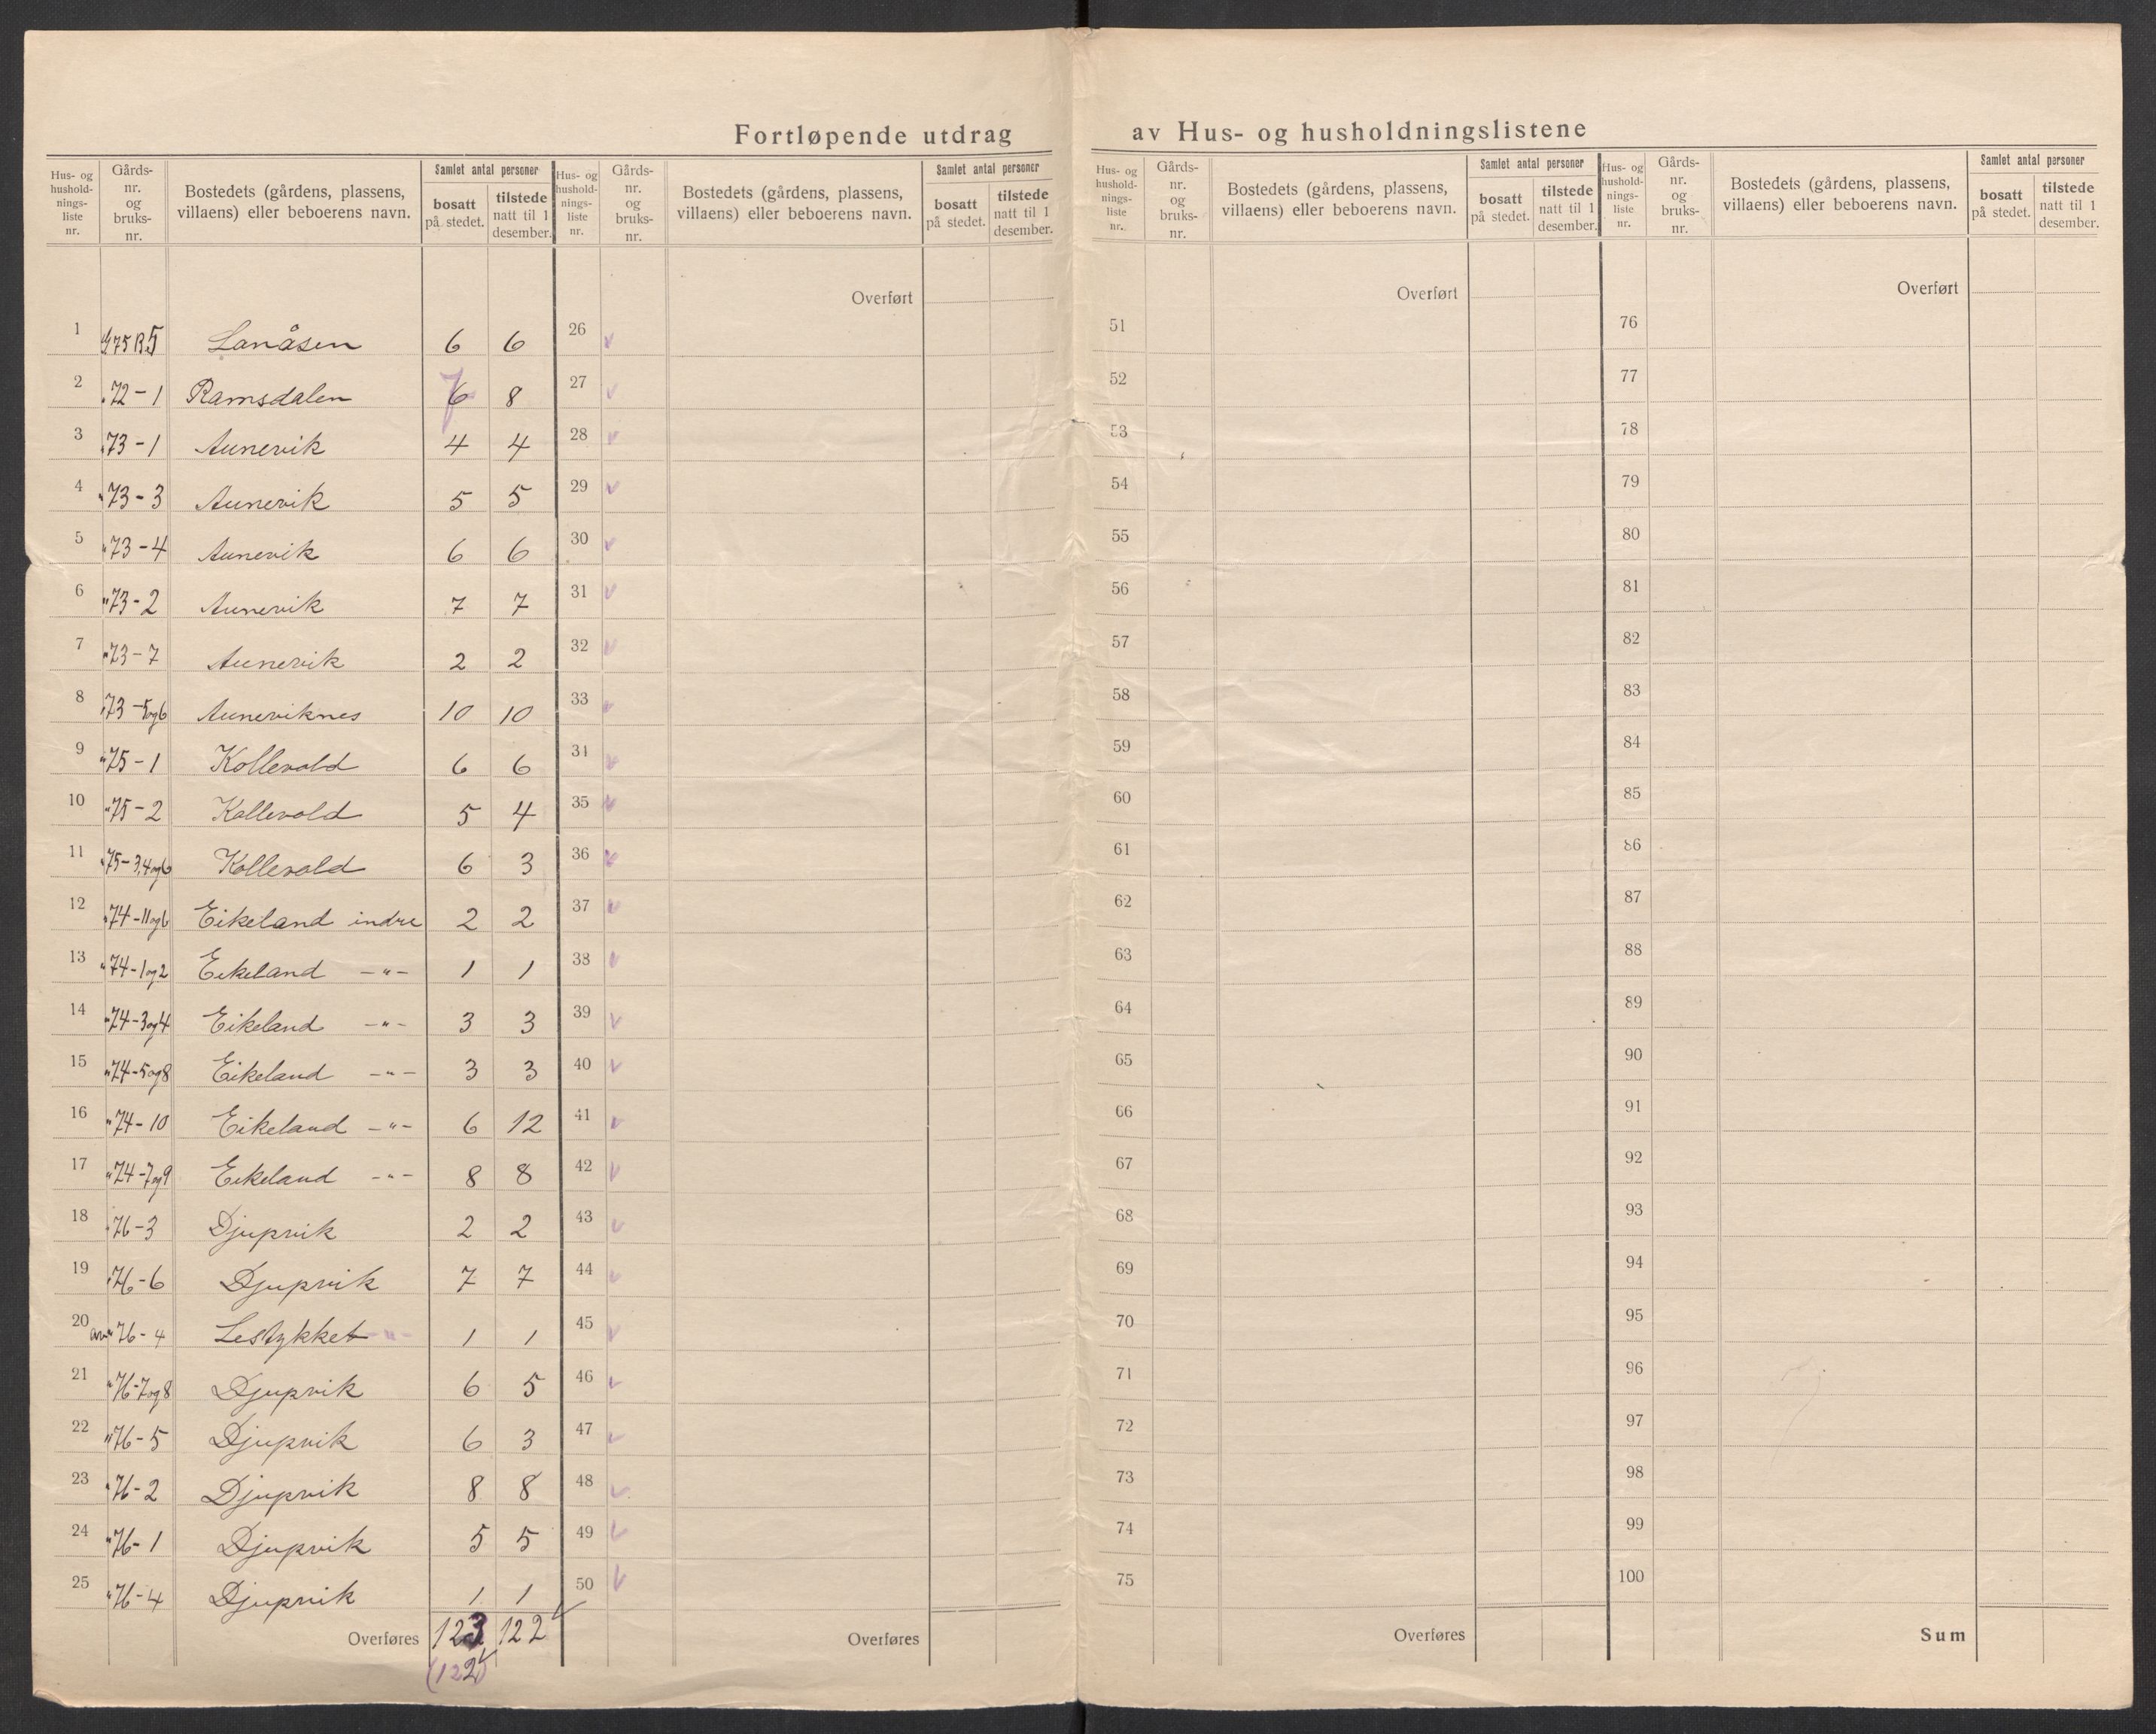 Fortløpende utdrag av Hus- og husholdningslistene
Hus- og hushold-nings-liste nr.
Gårds-nr. og bruks-nr.
Bostedets (gårdens, plassens, villaens) eller beboerens navn.
Samlet antal personer
bosatt på stedet.
tilstede natt til 1 desember.
Hus- og hushold-nings-liste nr.
Gårds-nr. og bruks-nr.
Bostedets (gårdens, plassens, villaens) eller beboerens navn.
Samlet antal personer
bosatt på stedet.
tilstede natt til 1 desember.
Hus- og hushold-nings-liste nr.
Gårds-nr. og bruks-nr.
Bostedets (gårdens, plassens, villaens) eller beboerens navn.
Samlet antal personer
bosatt på stedet.
tilstede natt til 1 desember.
Hus- og hushold-nings-liste nr.
Gårds-nr. og bruks-nr.
Bostedets (gårdens, plassens, villaens) eller beboerens navn.
Samlet antal personer
bosatt på stedet.
tilstede natt til 1 desember.
Overført Overført Overført
1 G 75 B 5 Lanåsen 6 6 26 51 76
2 72-1 Ramsdalen 6 7 8 27 52 77
3 73-1 Aunevik 4 4 28 53 78
4 " 73-3 Aunevik 5 5 29 54 79
5 " 73-4 Aunevik 6 6 30 55 80
6 " 73-2 Aunevik 7 7 31 56 81
7 " 73-7 Aunevik 2 2 32 57 82
8 " 73-5og6 Auneviknes 10 10 33 58 83
9 " 75-1 Kollevold 6 6 34 59 84
10 " 75-2 Kollevold 5 4 35 60 85
11 " 75-3,4og6 Kollevold 6 3 36 61 86
12 " 74-11og6 Eikeland indre 2 2 37 62 87
13 " 74-1og2 Eikeland -"- 1 1 38 63 88
14 " 74-3og4 Eikeland -"- 3 3 39 64 89
15 " 74-5og8 Eikeland -"- 3 3 40 65 90
16 " 74-10 Eikeland -"- 6 12 41 66 91
17 " 74-7og9 Eikeland -"- 8 8 42 67 92
18 " 76-3 Djupvik 2 2 43 68 93
19 " 76-6 Djupvik 7 7 44 69 94
20 av " 76-4 Lestykket -"- 1 1 45 70 95
21 " 76-7og8 Djupvik 6 5 46 71 96
22 " 76-5 Djupvik 6 3 47 72 97
23 " 76-2 Djupvik 8 8 48 73 98
24 " 76-1 Djupvik 5 5 49 74 99
25 " 76-4 Djupvik 1 1 50 75 100
Overføres 123 122 Overføres Overføres Sum
(122)